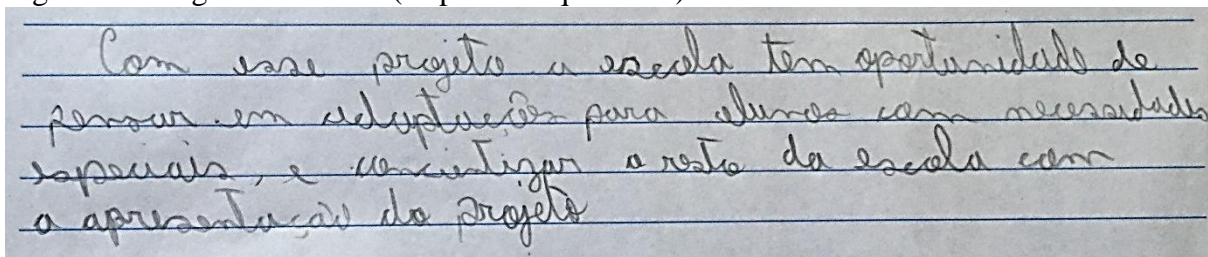 Com esse projeto a escola tem oportunidade de
pensar em adaptações para alunos com necessidades
especiais, e concientizar o resto da escola com
a apresentação do projeto